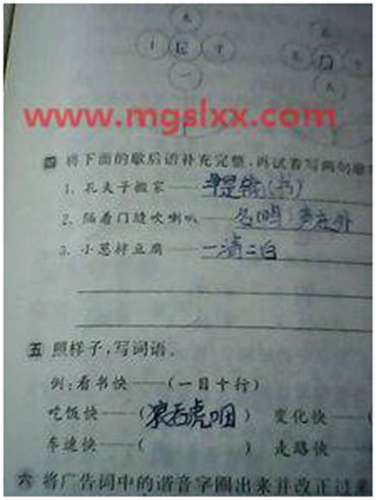 www.mgslxx.com
四 将下面的歇后语补充完整,再试着写两句歇
1. 孔夫子搬家——早是输(书)
2. 隔着门缝吹喇叭——名鸣声在外
3. 小葱拌豆腐——一清二白
五 照样子,写词语。
例:看书快——(一目十行)
吃饭快——(狼吞虎咽) 变化快——(
车速快——( ) 走路快——(
六 将广告词中的谐音字圈出来并改正过来